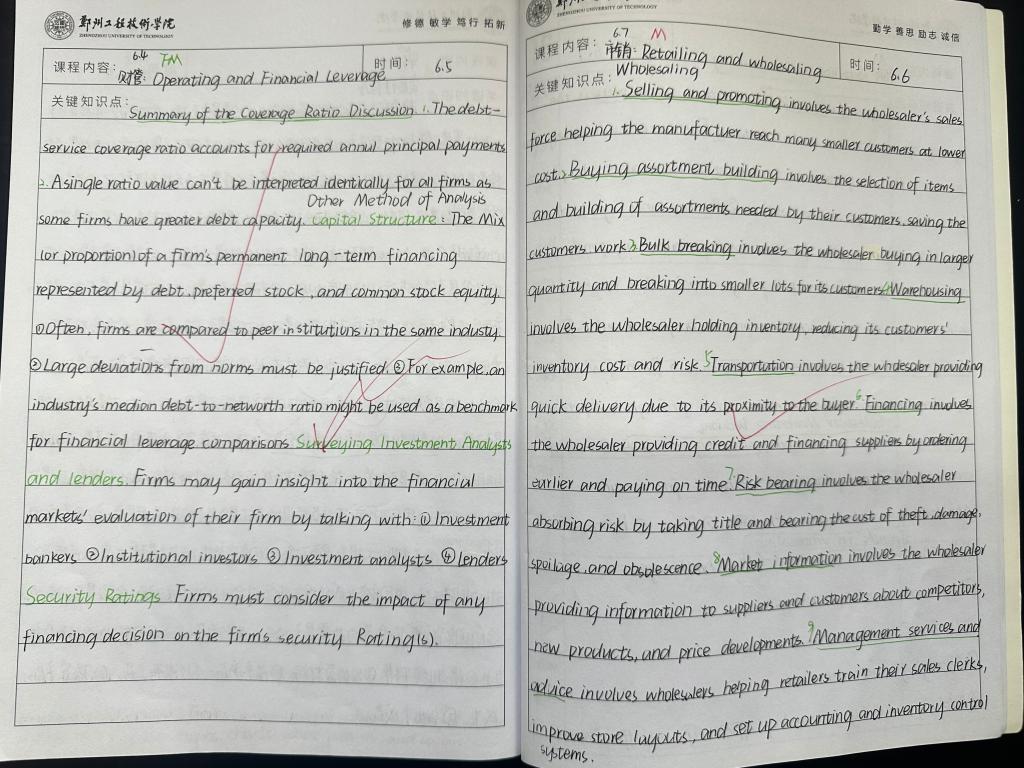 鄭州工程技術學院
ZHENGZHOU UNIVERSITY OF TECHNOLOGY
修德 敏学 笃行 拓新
6.4 FM
课程内容: 财管: Operating and Financial Leverage
时间: 6.5
关键知识点: Summary of the Coverage Ratio Discussion 1. The debt-
service coverage ratio accounts for required annul principal payments
2. A single ratio value can't be interpreted identically for all firms as
Other Method of Analysis
some firms have greater debt capacity. Capital Structure: The Mix
(or proportion) of a firm's permanent long-term financing
represented by debt, preferred stock, and common stock equity.
①Often, firms are compared to peer institutions in the same industy.
②Large deviations from norms must be justified. ③For example, an
industry's median debt-to-networth ratio might be used as a benchmark
for financial leverage comparisons. Surveying Investment Analysts
and lenders. Firms may gain insight into the financial
markets' evaluation of their firm by talking with: ① Investment
bankers ②Institutional investors ③Investment analysts ④lenders
Security Ratings Firms must consider the impact of any
financing decision on the firm's security Rating(s).
鄭州工程技術學院
ZHENGZHOU UNIVERSITY OF TECHNOLOGY
勤学 善思 励志 诚信
6.7 M
课程内容: 市销: Retailing and wholesaling
时间: 6.6
关键知识点: Wholesaling
1. Selling and promoting involves the wholesaler's sales
force helping the manufactuer reach many smaller customers at lower
cost. 2 Buying assortment building involves the selection of items
and building of assortments needed by their customers, saving the
customers work 3. Bulk breaking involves the wholesaler buying in larger
quantity and breaking into smaller lots for its customers 4. Warehousing
involves the wholesaler holding inventory, reducing its customers'
inventory cost and risk. 5 Transportation involves the wholesaler providing
quick delivery due to its proximity to the buyer 6. Financing involves
the wholesaler providing credit and financing suppliers by ordering
earlier and paying on time. 7 Risk bearing involves the wholesaler
absorbing risk by taking title and bearing the cust of theft, damage,
spoilage, and obsolescence. 8 Market information involves the wholesaler
providing information to suppliers and customers about competitors,
new products, and price developments. 9 Management services and
advice involves wholesalers helping retailers train their sales clerks,
improve store layouts, and set up accounting and inventory control
systems.